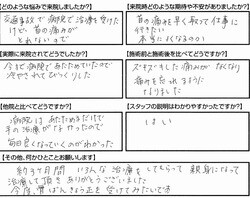 【どのような悩みで来院しましたか?】
交通事故で病院で治療を受けた
けど、首の痛みが
とれないので
【来院時どのような期待や不安がありましたか?】
首の痛み早く取って仕事に
行きたい
本当に良くなるのか
【実際に来院されてどうでしたか?】
今まで病院であたためていたので
冷やされてびっくりした
【施術前と施術後を比べてどうですか?】
ズキズキした痛みがなくなり
痛みを忘れるように
なりました
【他院と比べてどうですか?】
病院はあたためるだけで
手の治療がなかったので
毎日良くなっていくのがわかった
【スタッフの説明はわかりやすかったですか?】
はい
【その他、何かひとことお願いします】
約3ヶ月間 いろんな治療をしてもらって親身になって
治療して頂きありがとうございました
今度、骨ばんきょう正を受けてみたいです